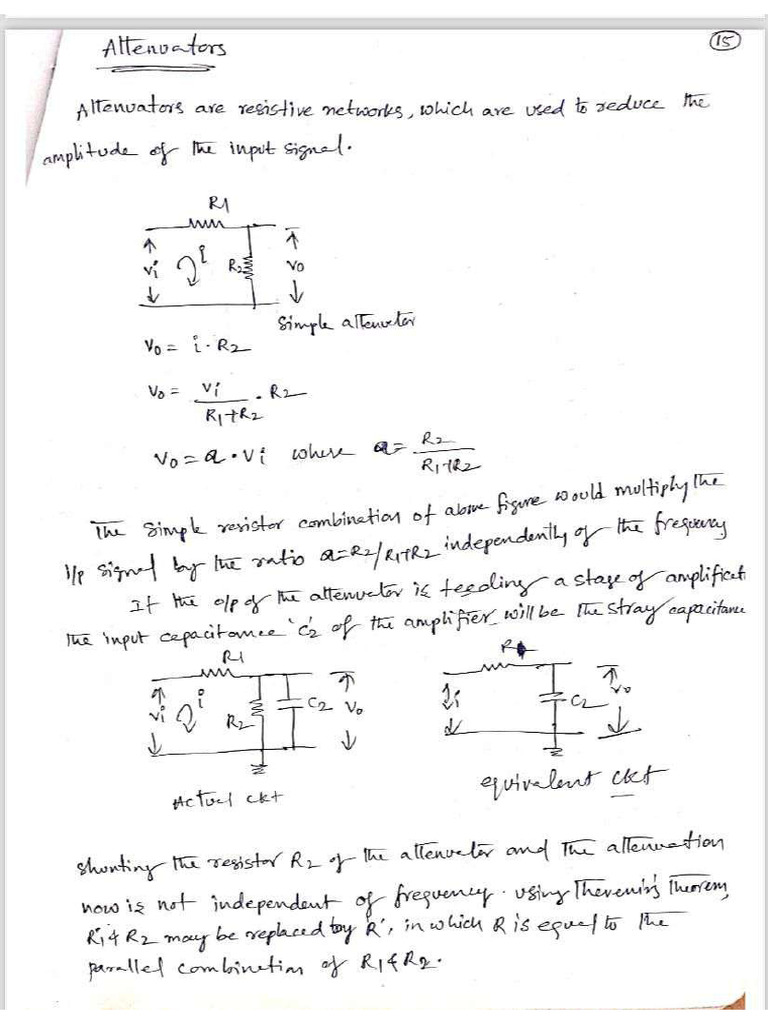 Attenuators
15
Attenuators are resistive networks, which are used to reduce the
amplitude of the input signal.
R1
vi
i
R2
vo
Simple attenuator
Vo = i · R2
Vo = Vi / R1+R2 · R2
Vo = a · Vi where a = R2 / R1+R2
The simple resistor combination of above figure would multiply the
i/p signal by the ratio a=R2/R1+R2 independently of the frequency
If the o/p of the attenuator is feeding a stage of amplificati
the input capacitance 'C2' of the amplifier will be the stray capacitance
R1
vi
i
R2
C2
Vo
Actual ckt
R
vi
C2
vo
equivalent ckt
shunting the resistor R2 of the attenuator and the attenuation
now is not independent of frequency. using Thevenin's Theorem,
R1 & R2 may be replaced by 'R', in which R is equal to the
parallel combination of R1 & R2.